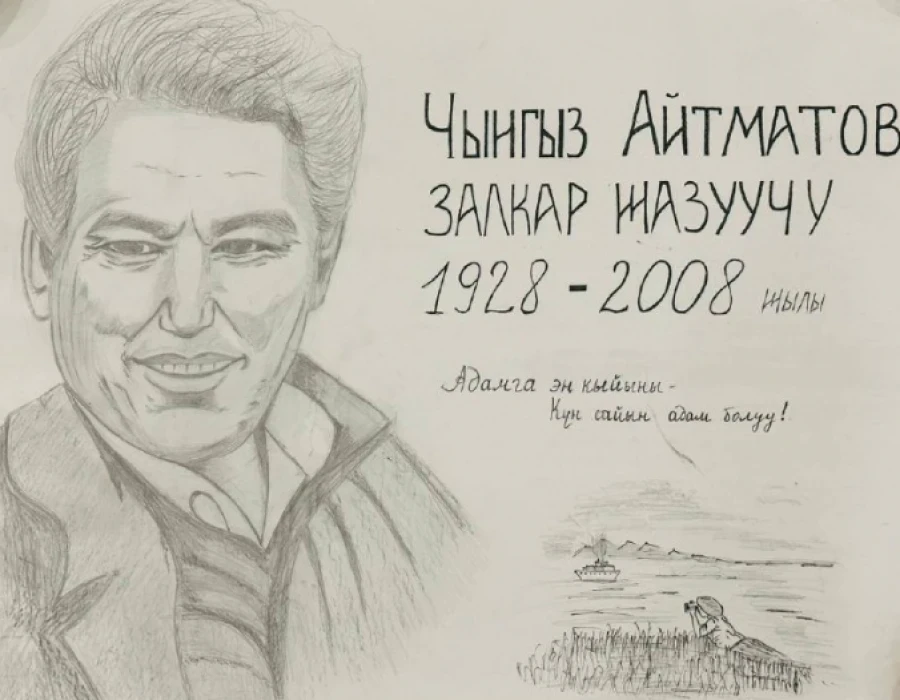 Чынгыз Айтматов
ЗАЛКАР ЖАЗУУЧУ
1928 - 2008 жылы
Адамга эң кыйыны -
Күн сайын адам болуу!